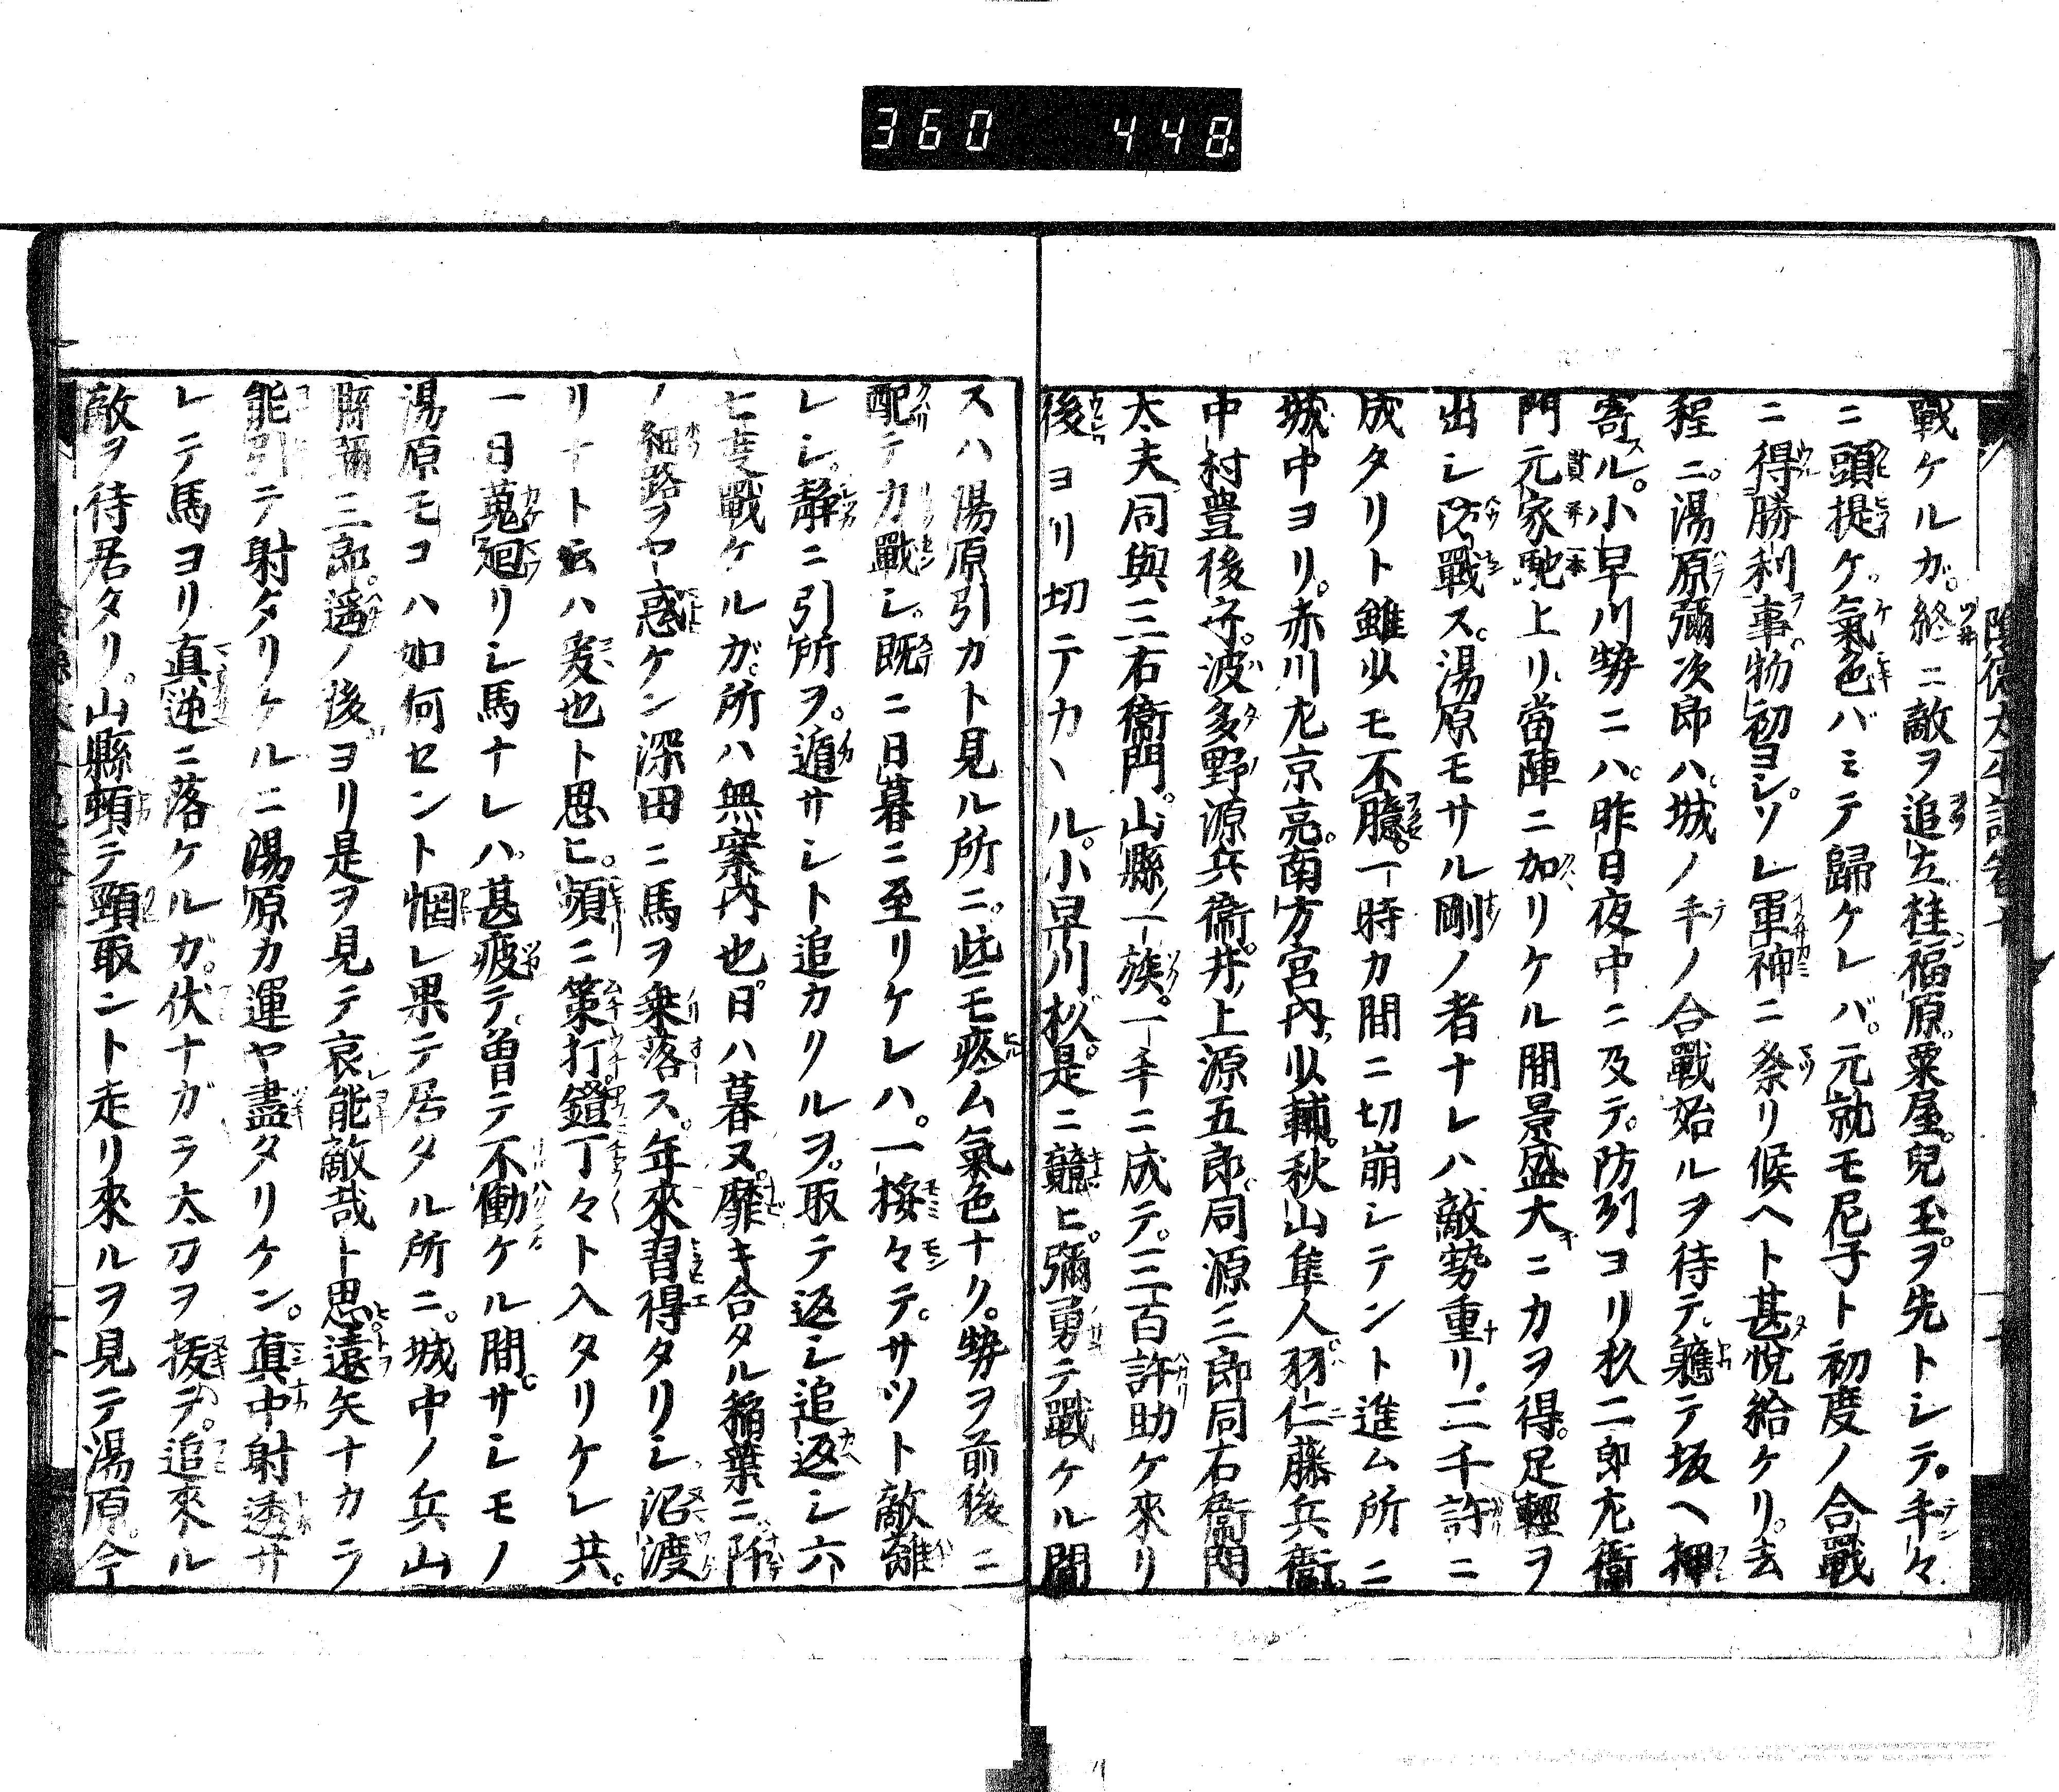 360 448
戰ケルガ。終ニ敵ヲ追立桂福原。粟屋。兒玉。ヲ先トシテ。手々
ニ頭提ケ。氣色バミテ歸ケレバ。元就モ尼子ト初度ノ合戰
ニ得勝利事。物初ヨシ。ソレ軍神ニ祭リ候ヘト甚悅給ケリ。去
程ニ。湯原彌次郎ハ。城ノ手ノ合戰始ルヲ待テ。軈テ坂ヘ押
寄ル。小早川勢ニハ。昨日夜中ニ及テ。防引ヨリ杦二郎尤衞
門元家馳上リ。當陣ニ加リケル間景盛大ニカヲ得。足輕ヲ
出シ防戰ス。湯原モサル剛ノ者ナレハ敵勢重リ。二千許ニ
成タリト雖𪜈モ不臆。一時カ間ニ切崩シテント進ム所ニ
城中ヨリ。赤川尤京亮。南方宮内少輔。秋山隼人。羽仁藤兵衞。
中村豊後守。波多野源兵衞。井上源五郎。同源三郎同右衞門
太夫同與三右衞門。山縣ノ一族。一手ニ成テ。三百許助ケ來リ
後ヨリ切テカヽル。小早川杦。是ニ競ヒ。彌勇テ戰ケル間
スハ湯原引カト見ル所ニ。些モ疼ム氣色ナク。勢ヲ前後ニ
配テカ戰シ。既ニ日暮ニ至リケレハ。一接々テ。サツト敵離
レシ。靜ニ引所ヲ。遁サシト追カリルヲ。取テ返シ追返シ六
ヒ迄戰ケルガ。所ハ無案内也。日ハ暮ヌ。靡キ合タル稲葉ニ。陏
ノ細路ヲヤ惑ケン深田ニ馬ヲ乗落ス。年來習得タリシ沼渡
リナト云ハ爰也ト思ヒ。頻ニ策打。鐙丁々ト入タリケレ共。
一日蒐廻リシ馬ナレハ。甚疲テ。曽テ不働ケル間。サシモノ
湯原モコハ如何セント惘レ果テ居タル所ニ。城中ノ兵山
縣彌三郎。遥ノ後ヨリ是ヲ見テ哀能敵哉ト思。遠矢ナカラ
能引テ射タリケルニ湯原カ運ヤ盡タリケン。真中射透サ
レテ馬ヨリ真逆ニ落ケルガ。伏ナガラ太刀ヲ抜テ。追來ル
敵ヲ待居タリ。山縣頓テ頸取ント走リ來ルヲ見テ湯原。今